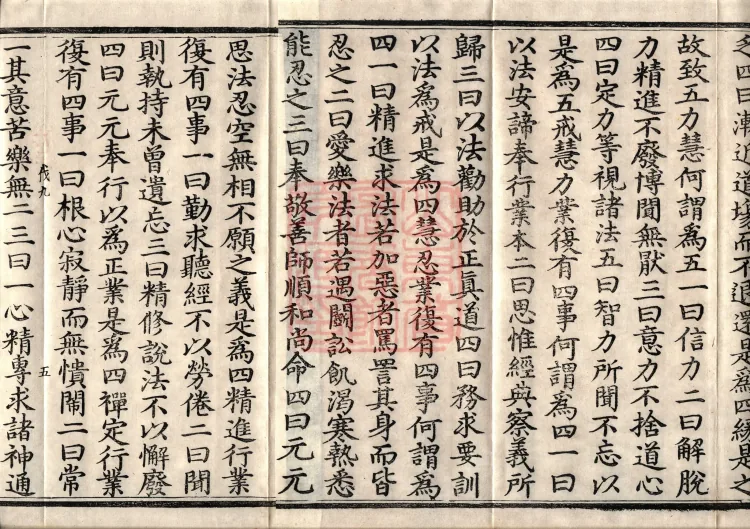 四曰漸近道場而不退還是爲四緣是之
故致五力慧何謂爲五一曰信力二曰解脫
力精進不廢博聞無猒三曰意力不捨道心
四曰定力等視諸法五曰智力所聞不忘以
是爲五戒慧力業復有四事何謂爲四一曰
以法安諦奉行業本二曰思惟經典察義所
歸三曰以法勸助於正眞道四曰務求要訓
以法爲戒是爲四慧忍業復有四事何謂爲
四一曰精進求法若加惡者罵詈其身而皆
忍之二曰愛樂法者若遇鬪訟飢渴寒熱悉
能忍之三曰奉敬善師順和尚命四曰元元
思法忍空無相不願之義是爲四精進行業
復有四事一曰勤求聽經不以勞倦二曰聞
則執持未曾遺忘三曰精修說法不以懈廢
四曰元元奉行以爲正業是爲四禪定行業
復有四事一曰根心寂靜而無憒閙二曰常
一其意苦樂無二三曰一心精專求諸神通
五